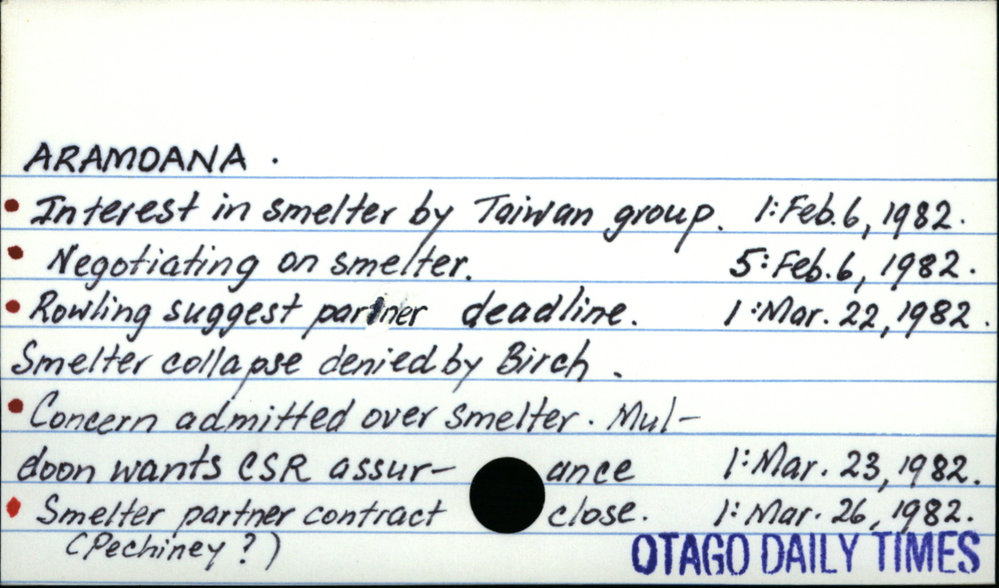 ARAMOANA.
• Interest in smelter by Taiwan group. 1:Feb.6, 1982.
• Negotiating on smelter. 5:Feb.6, 1982.
• Rowling suggest partner deadline. 1:Mar. 22, 1982.
Smelter collapse denied by Birch.
• Concern admitted over smelter. Mul-
doon wants CSR assur-ance 1:Mar. 23, 1982.
• Smelter partner contract close. 1:Mar. 26, 1982.
(Pechiney?)
OTAGO DAILY TIMES